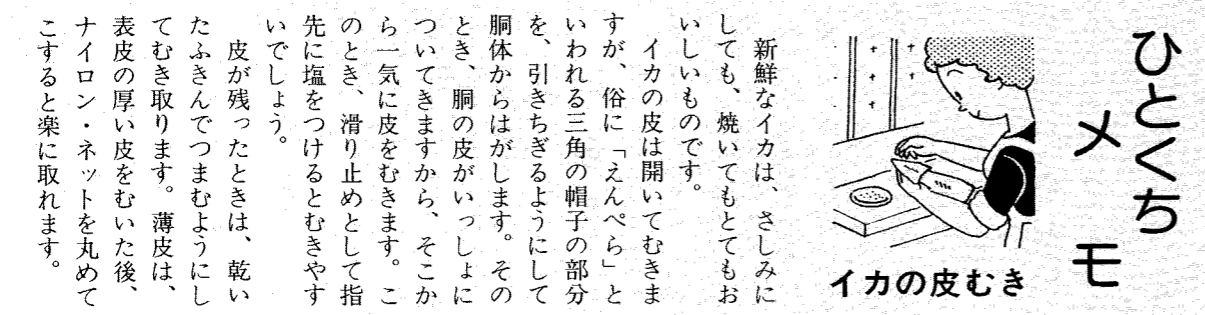 ひとくち
メモ
イカの皮むき
新鮮なイカは、さしみに
しても、焼いてもとてもお
いしいものです。
イカの皮は開いてむきま
すが、俗に「えんぺら」と
いわれる三角の帽子の部分
を、引きちぎるようにして
胴体からはがします。その
とき、胴の皮がいっしょに
ついてきますから、そこか
ら一気に皮をむきます。こ
のとき、滑り止めとして指
先に塩をつけるとむきやす
いでしょう。
皮が残ったときは、乾い
たふきんでつまむようにし
てむき取ります。薄皮は、
表皮の厚い皮をむいた後、
ナイロン・ネットを丸めて
こすると楽に取れます。